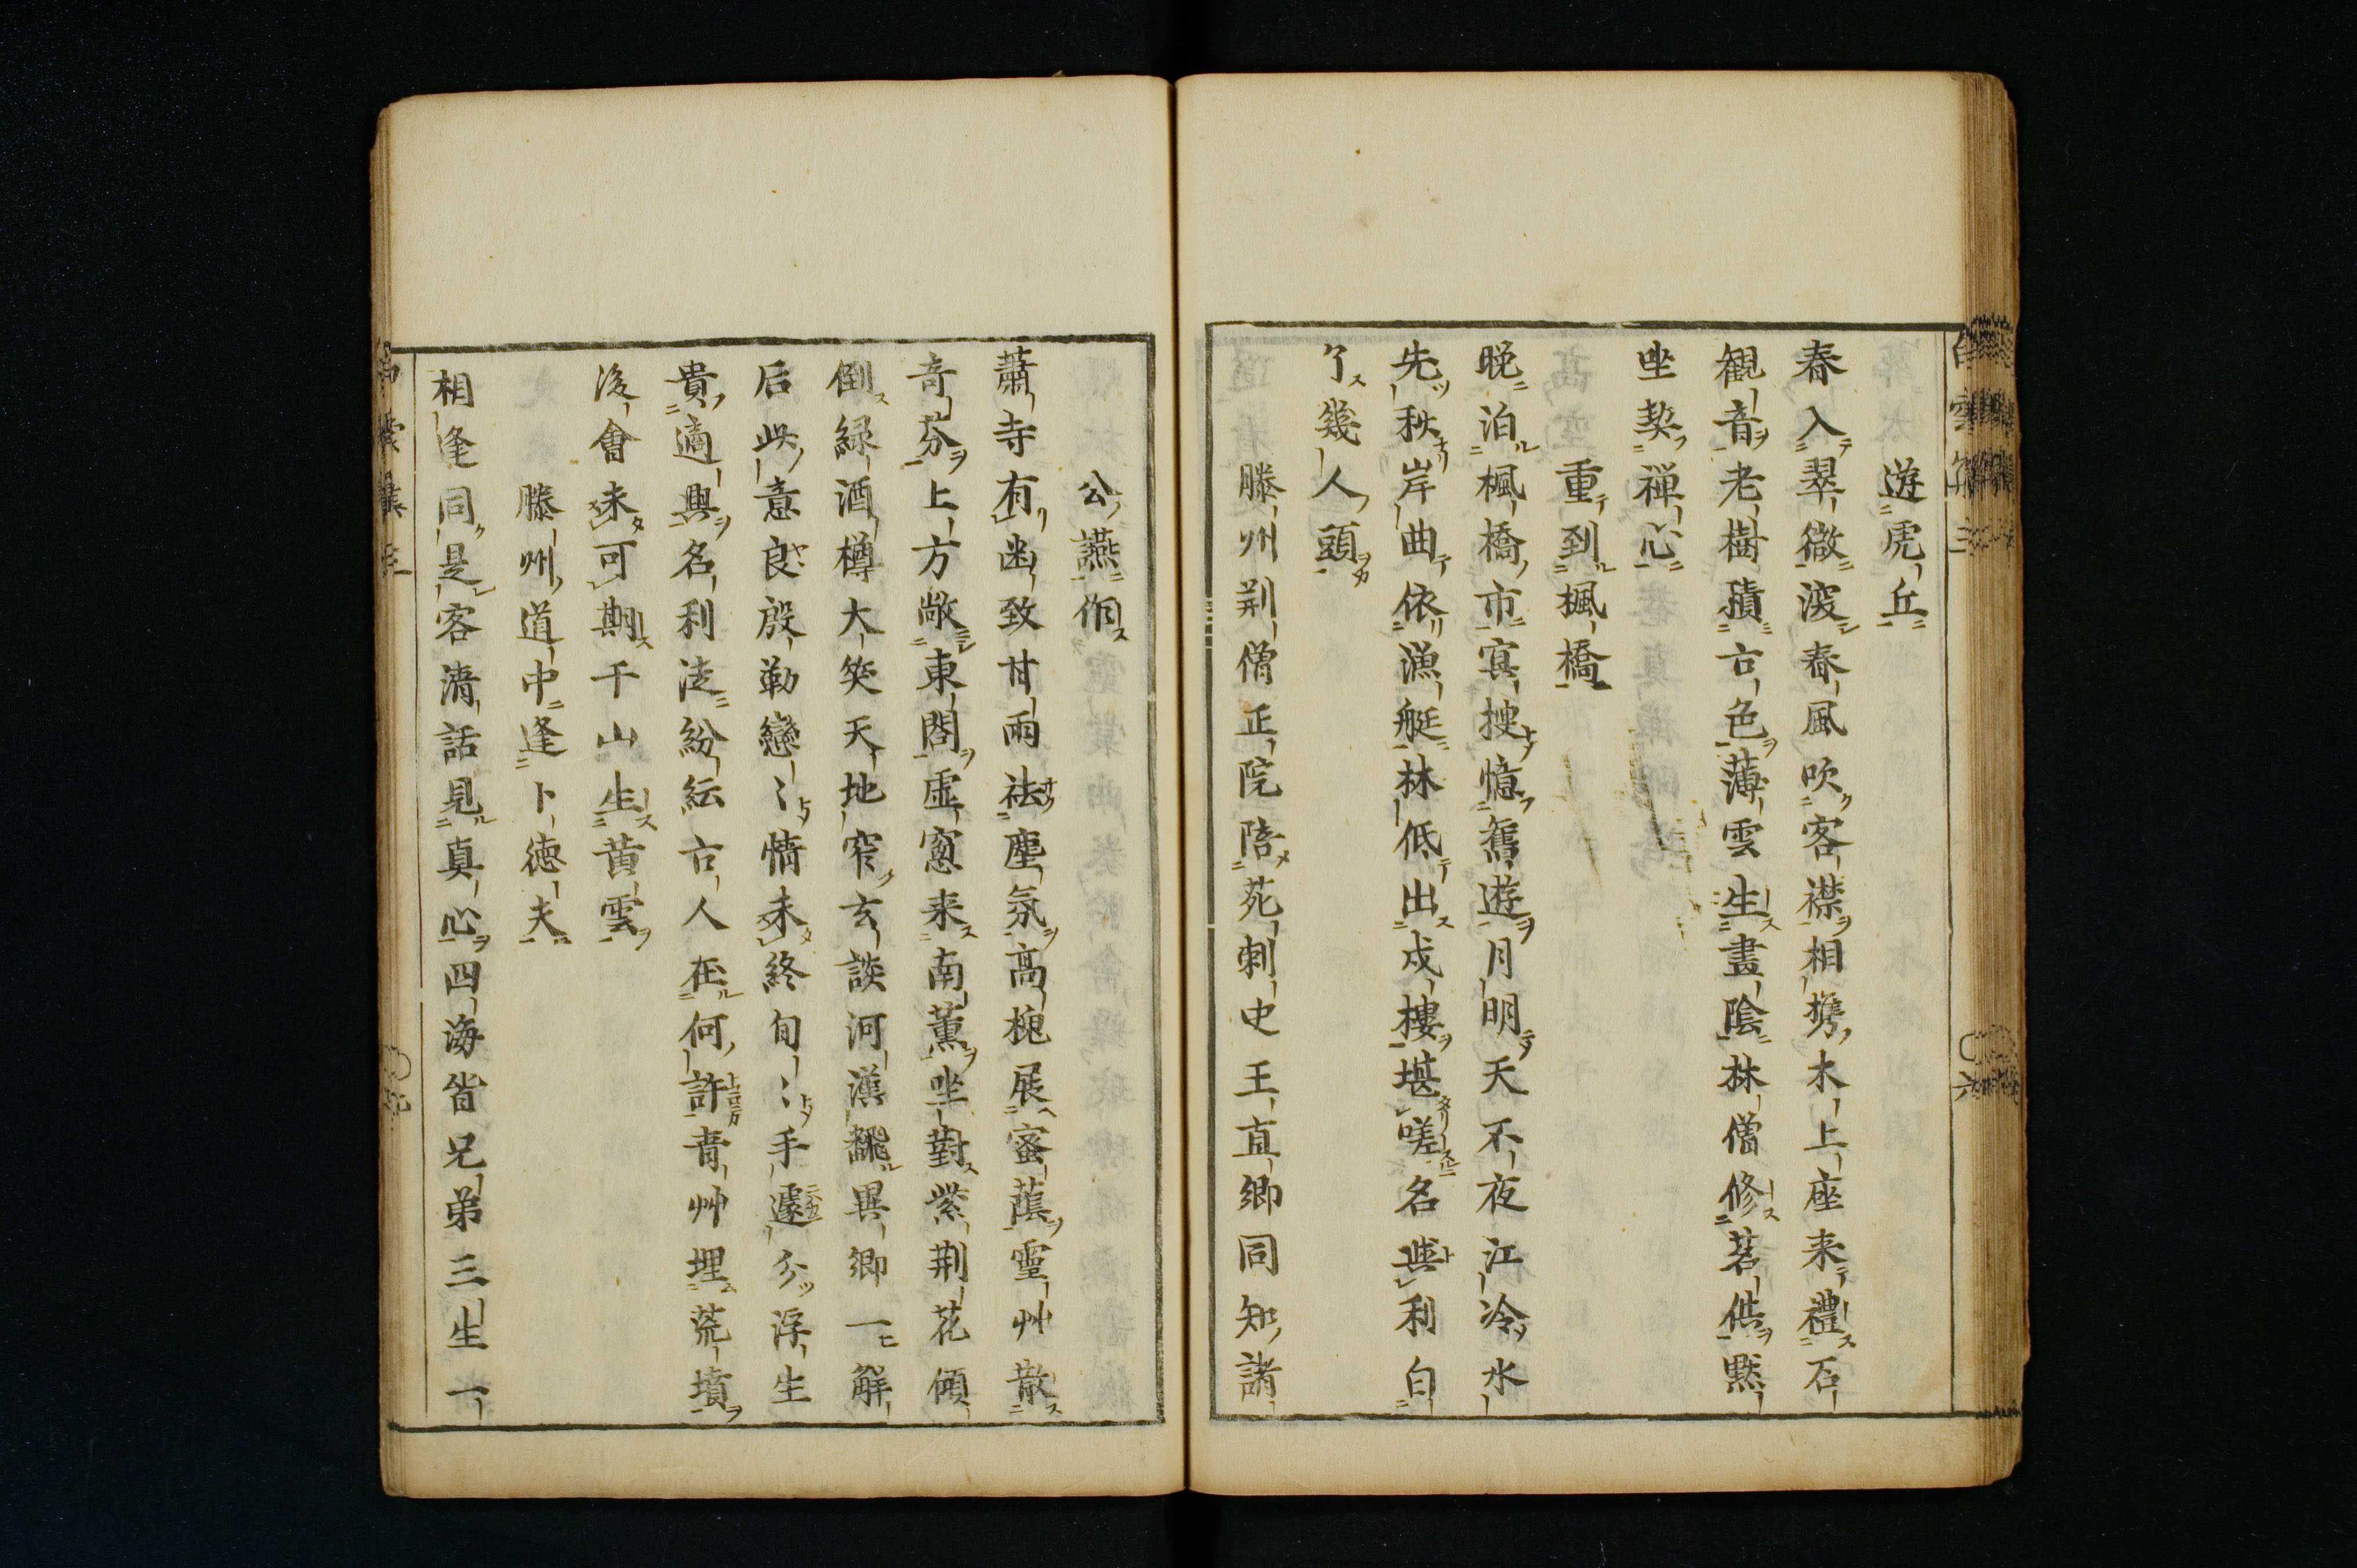 遊虎丘
春入翠微深春風吹客襟相携木上座来禮石
觀音老樹積古色薄雲生晝陰林僧修茗供黙
坐契禅心
重到楓橋
晚泊楓橋市寞搜憶舊遊月明天不夜江冷水
先秋岸曲依漁艇林低出戍樓堪嗟名與利白
了幾人頭
滕州荊僧正院陪苑刺史王直卿同知諸
公燕作
蕭寺有幽致甘雨祛塵氛高槐展蜜蔭靈艸散
奇芬上方敞東閣虛窓来南薫坐對紫荊花傾
倒緑酒樽大笑天地窄玄談河漢飜異卿一解
后此意良殷勤戀〻情未終旬〻手遽分浮生
貴適興名利徒紛紜古人在何許青艸埋荒墳
後會未可期千山生黄雲
滕州道中逢卜徳夫
相逢同是客清話見真心四海皆兄弟三生一
白雲集三
六